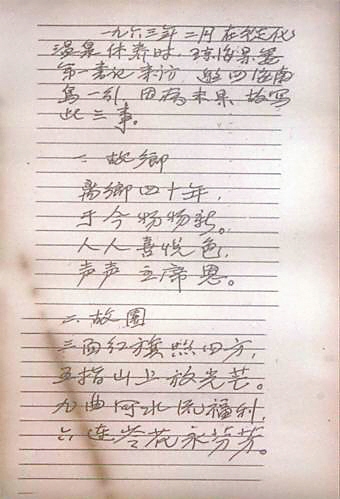 一九六三年二月在从化
温泉休养时，琼海县委
第一书记来访 邀回海南
岛一行，因病未果，故写
此三事。
一、故鄉
离鄉四十年，
于今物物新。
人人喜悦色，
声声主席恩。
二、故園
三面红旗照四方，
五指山上放光芒。
九曲河水流福利，
六连岭花永芬芳。